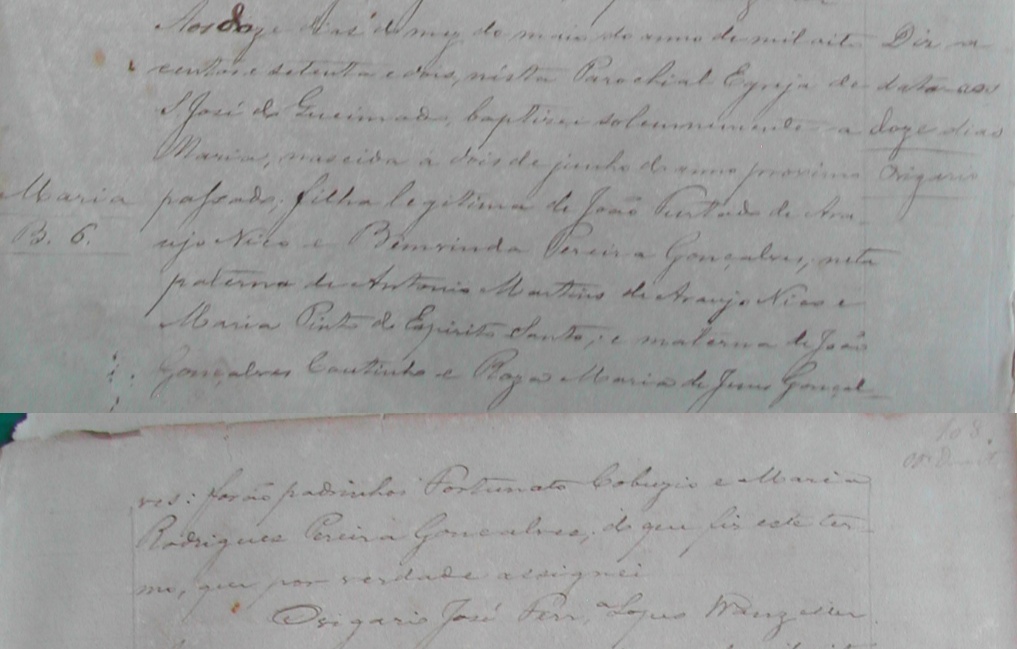 Aos doze dias do mez de maio do anno de mil oito
centos e setenta e dois, nésta Parochial Egreja de
S. José do Queimado, baptizei solemnemente a
Maria, nascida a dois de junho do anno proximo
Maria
B. 6.
passado, filha legitima de João Furtado de Ara-
ujo Nico e Bemvinda Pereira Gonçalves, neta
paterna de Antonio Martins de Araujo Nico e
Maria Pinto do Espirito Santo, e materna de João
Gonçalves Coutinho e Roza Maria de Jesus Gonçal-
Diz
data aos
doze dias
Vigario
108.
ves: forão padrinhos Fortunato e Maria
Rodrigues Pereira Gonçalves; do que fiz este ter-
mo, que por verdade assignei
O Vigario José Ferrª Lopes Wanzeller